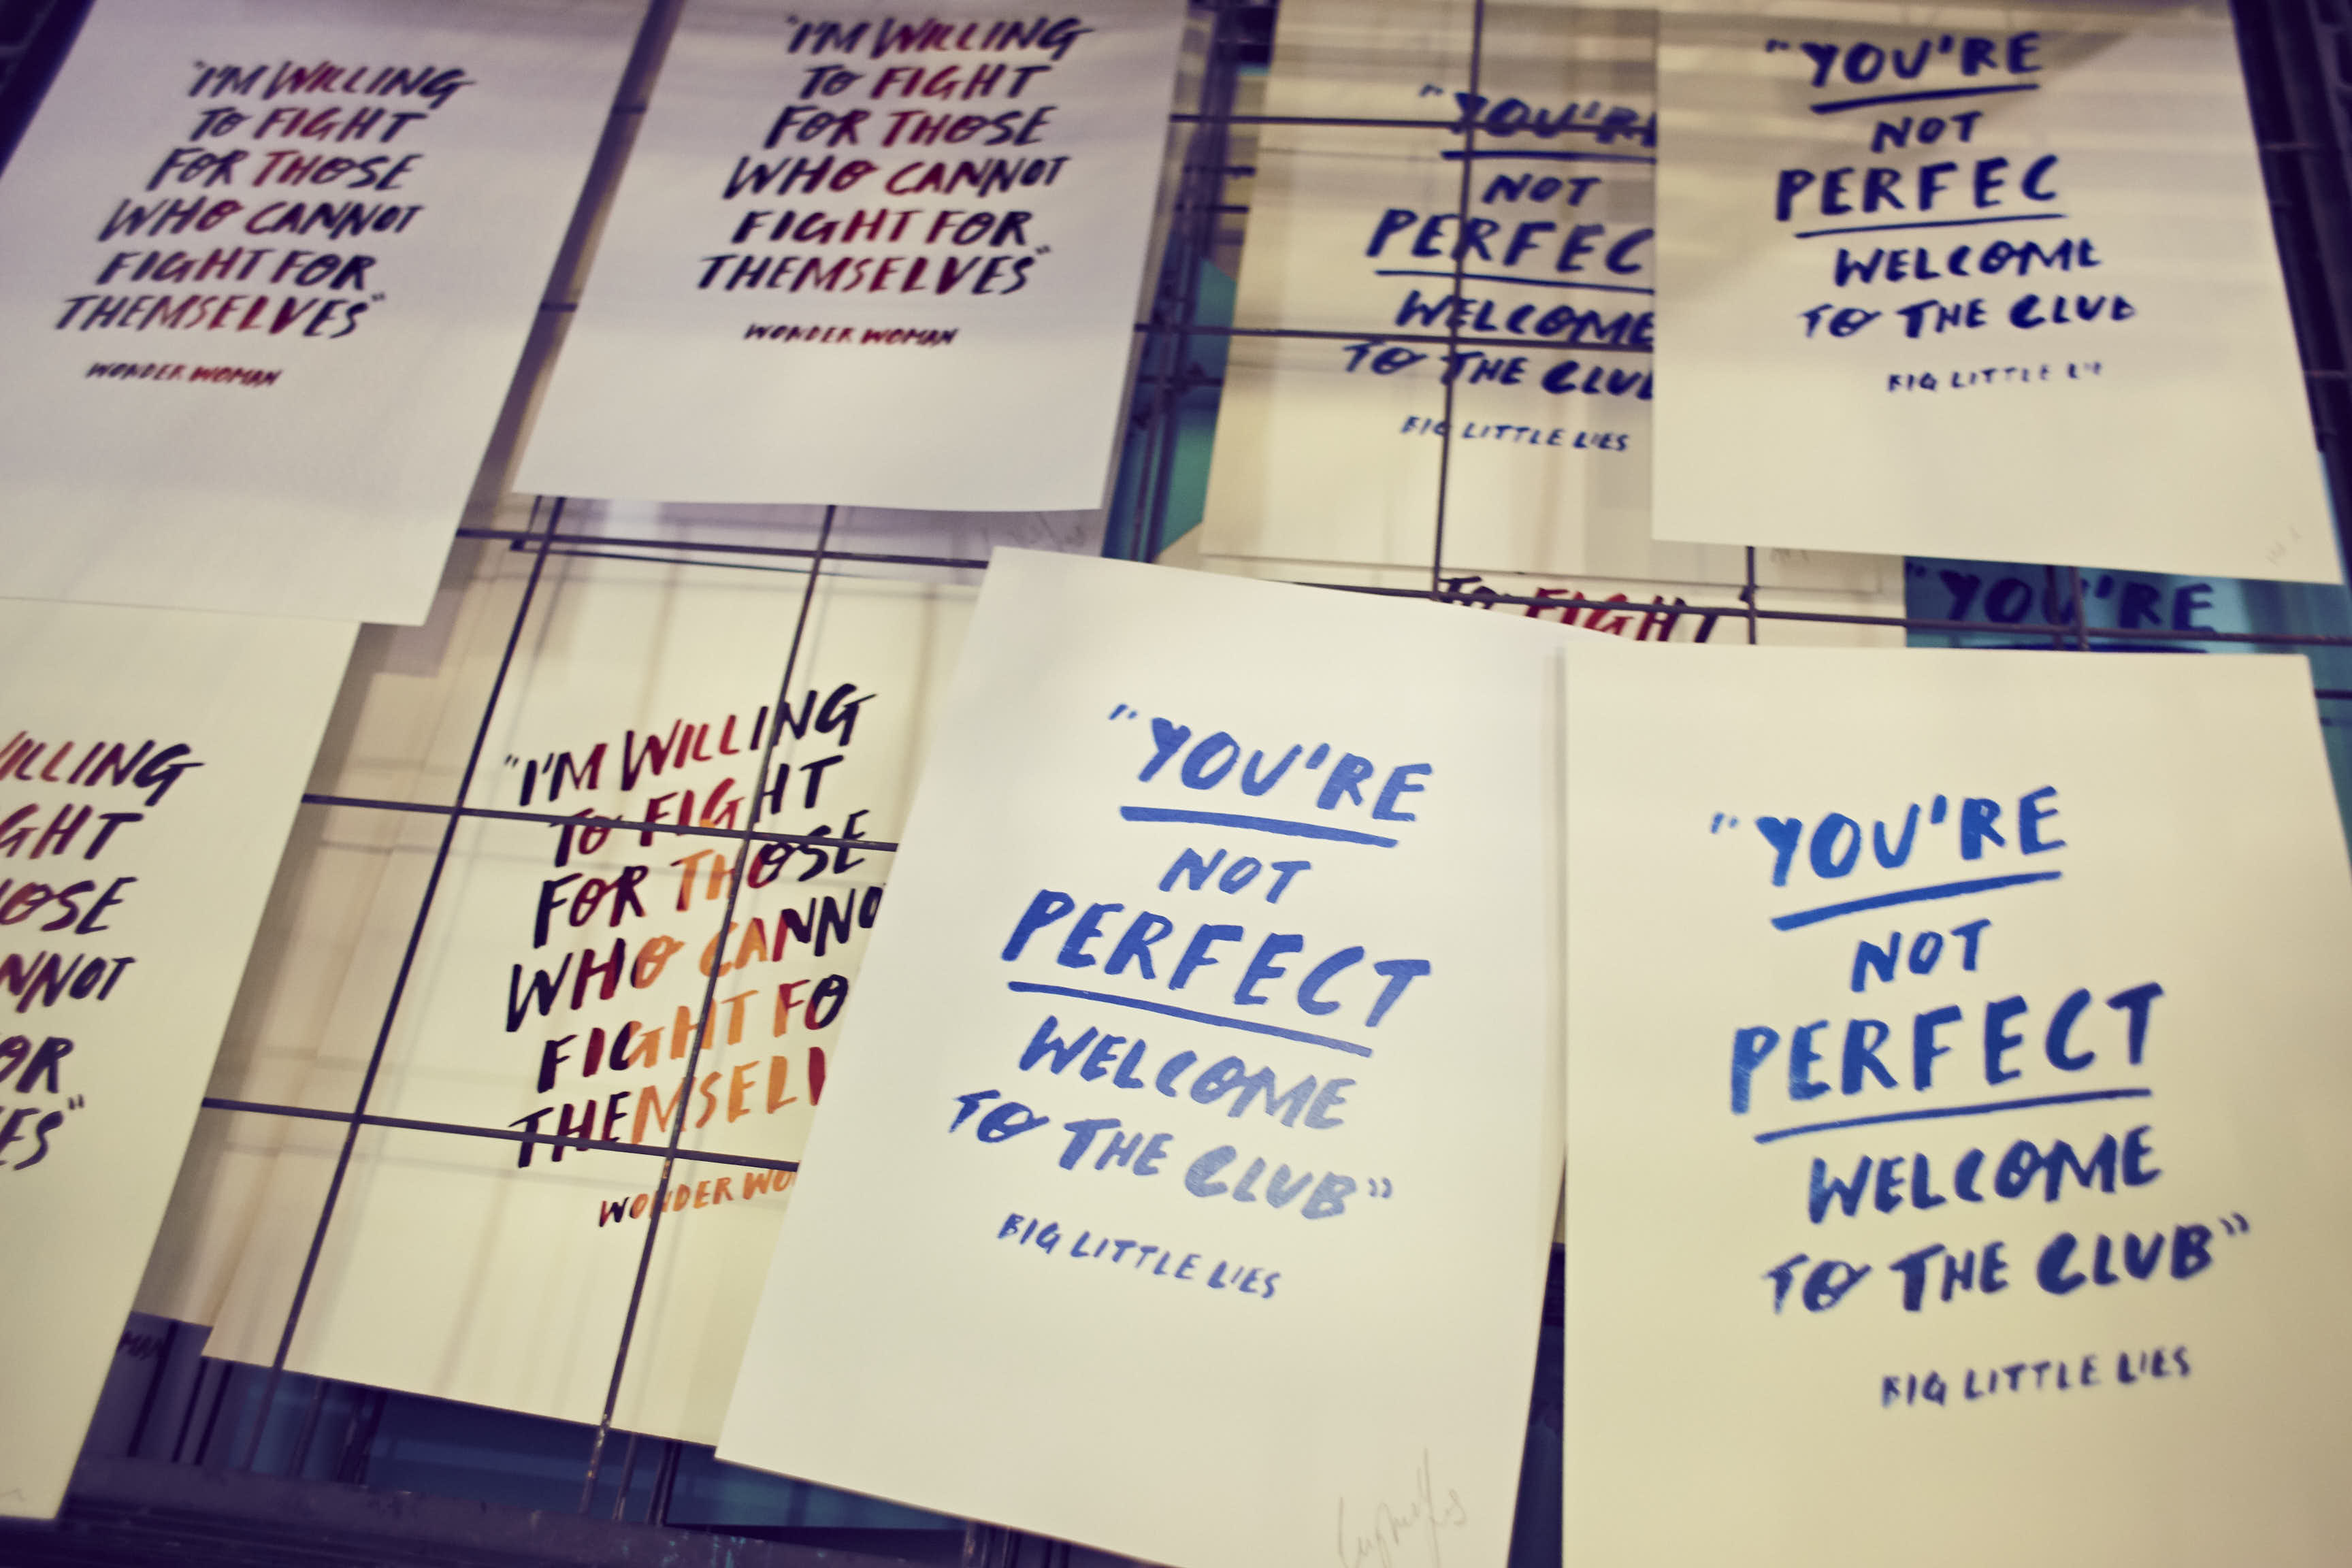 "I'M WILLING
TO FIGHT
FOR THOSE
WHO CANNOT
FIGHT FOR
THEMSELVES"
WONDER WOMAN
"I'M WILLING
TO FIGHT
FOR THOSE
WHO CANNOT
FIGHT FOR
THEMSELVES"
WONDER WOMAN
"YOU'R
NOT
PERFEC
WELCOME
TO THE CLU
BIG LITTLE LIES
"YOU'RE
NOT
PERFEC
WELCOME
TO THE CLUB
BIG LITTLE LI
TO FIGHT
"YOU'RE
ILLING
GHT
OSE
NNOT
OR
ES"
MAN
"I'M WILLING
TO FIGHT
FOR THOSE
WHO CANNO
FIGHT FO
THEMSEL
WONDER WO
"YOU'RE
NOT
PERFECT
WELCOME
TO THE CLUB"
BIG LITTLE LIES
"YOU'RE
NOT
PERFECT
WELCOME
TO THE CLUB"
BIG LITTLE LIES